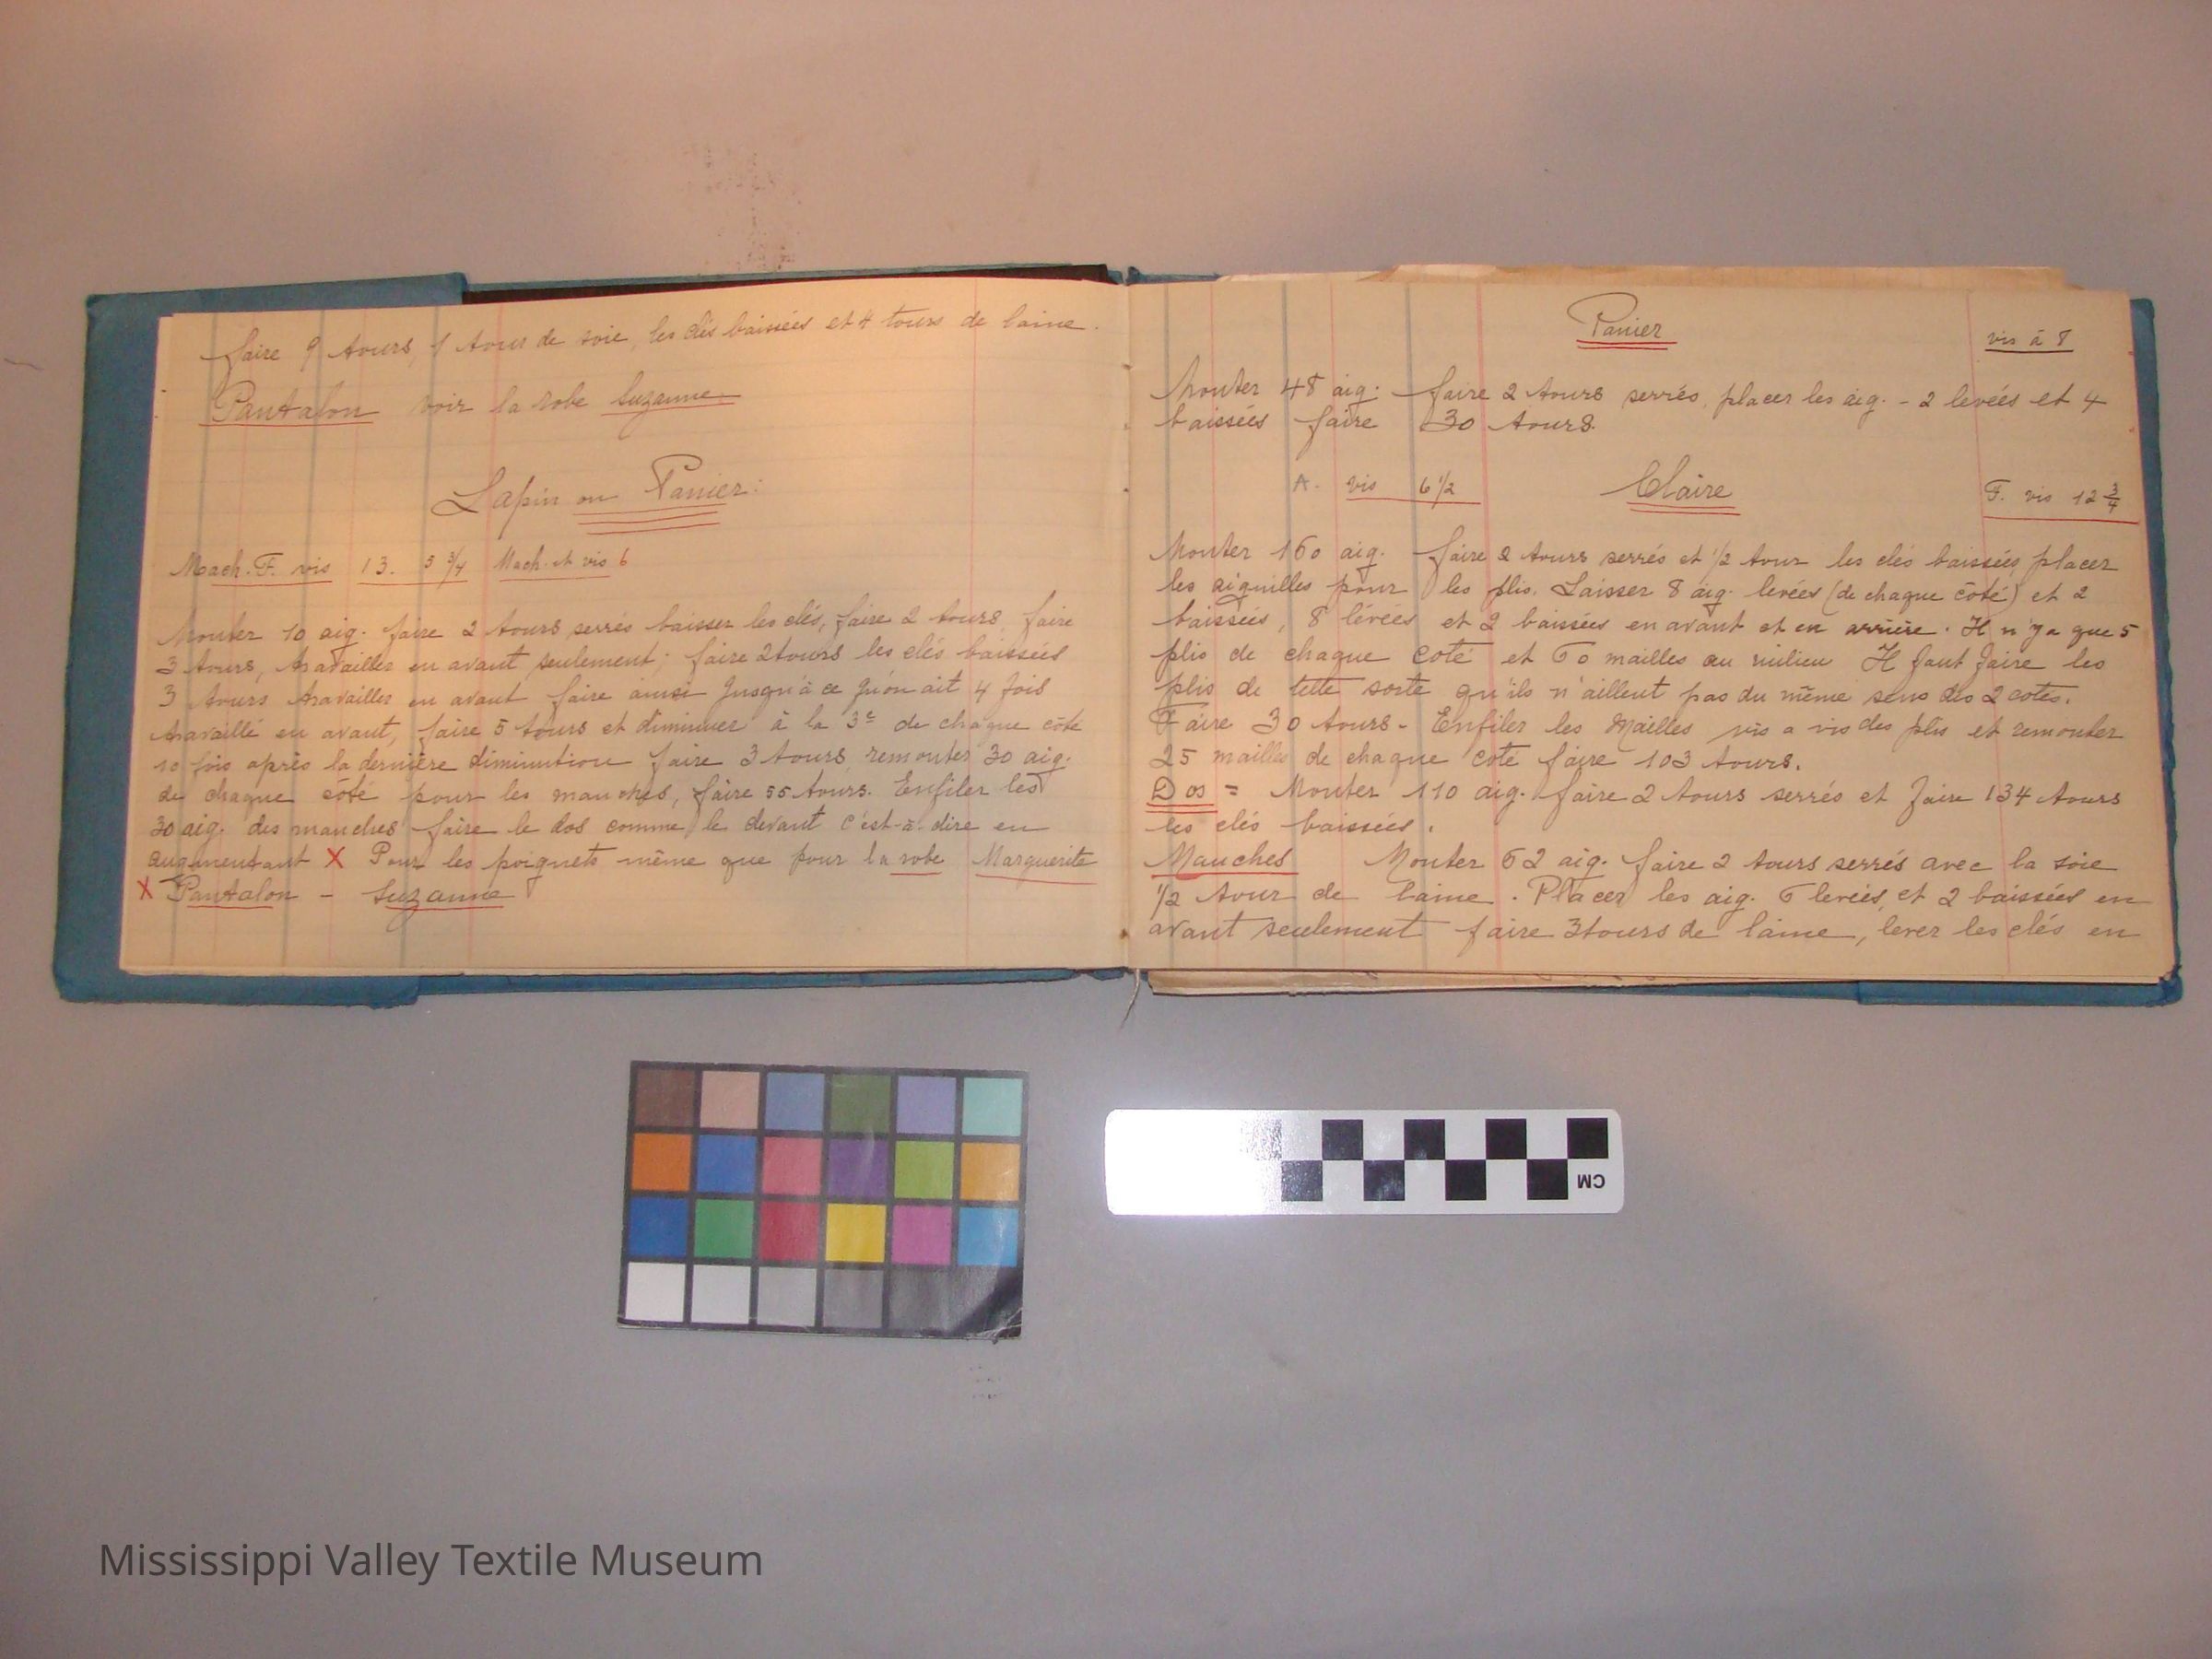 faire 9 tours, 1 tour de soie, les clés baissées et 4 tours de laine.
Pantalon voir la robe Suzanne.
Lapin ou Panier:
Mach. F. vis 13. 5 3/4 Mach. et vis 6
Monter 10 aig. faire 2 tours serrés baisser les clés, faire 2 tours faire
3 tours, travailler en avant seulement; faire 2 tours les clés baissées
3 tours travailler en avant faire ainsi jusqu'à ce qu'on ait 4 fois
travaillé en avant, faire 5 tours et diminuer à la 3e de chaque côté
10 fois après la dernière diminution faire 3 tours, remonter 30 aig.
de chaque côté pour les manches, faire 55 tours. Enfiler les
30 aig. des manches faire le dos comme le devant c'est-à-dire en
augmentant X Pour les poignets même que pour la robe Marguerite
X Pantalon - Suzanne
Panier
vis à 8
Monter 48 aig. faire 2 tours serrés, placer les aig. - 2 levées et 4
baissées faire 30 tours.
A. vis 6 1/2 Claire F. vis 12 3/4
Monter 160 aig. faire 2 tours serrés et 1/2 tour les clés baissées, placer
les aiguilles pour les plis. Laisser 8 aig. levées (de chaque côté) et 2
baissées, 8 levées et 2 baissées en avant et en arrière. Il n'y a que 5
plis de chaque coté et 60 mailles au milieu Il faut faire les
plis de telle sorte qu'ils n'aillent pas du même sens des 2 cotés.
Faire 30 tours. Enfiler les mailles vis a vis des plis et remonter
25 mailles de chaque coté faire 103 tours.
Dos = Monter 110 aig. faire 2 tours serrés et faire 134 tours
les clés baissées.
Manches Monter 62 aig. faire 2 tours serrés avec la soie
1/2 tour de laine. Placer les aig. 6 levées, et 2 baissées en
avant seulement faire 3 tours de laine, lever les clés en
CM
Mississippi Valley Textile Museum